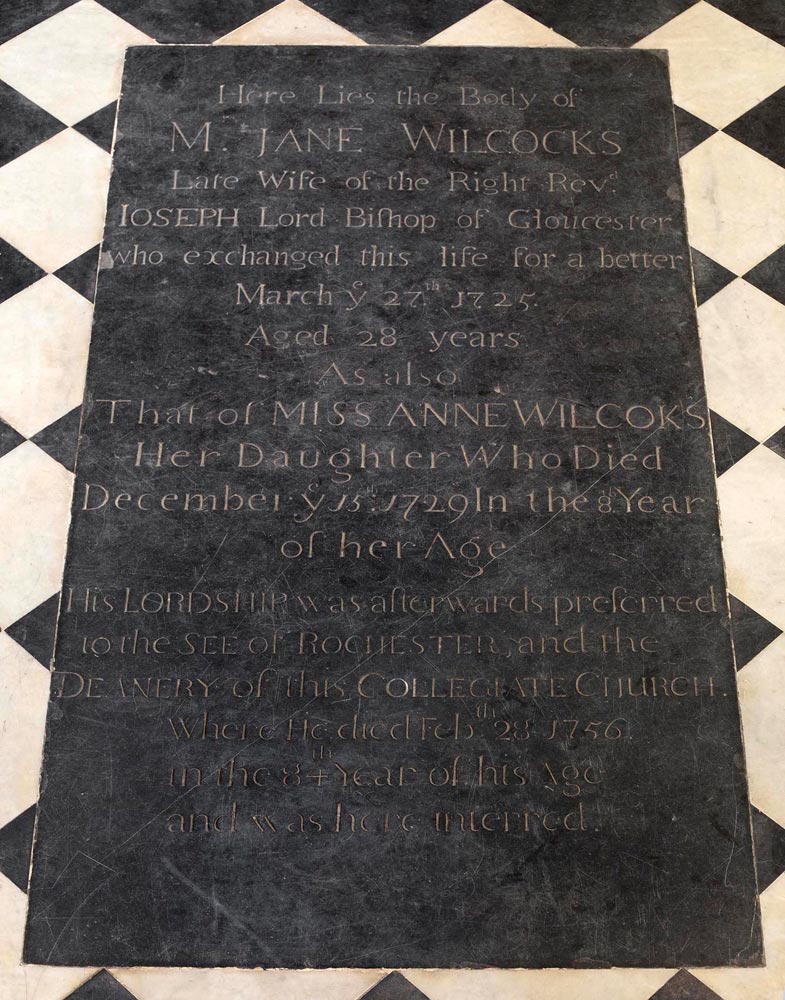 Here Lies the Body of
M. JANE WILCOCKS
Late Wife of the Right Rev.d
IOSEPH Lord Biſhop of Gloucester
who exchanged this life for a better
March ye 27th 1725.
Aged 28 years
As also
That of MISS ANNE WILCOKS
Her Daughter Who Died
December ye 15th. 1729 In the 8th Year
of her Age
His LORDSHIP was afterwards preferred
to the SEE of ROCHESTER, and the
DEANERY of this COLLEGIATE CHURCH.
Where He died Feb. 28th 1756.
in the 84th Year of his Age
and was here interred.